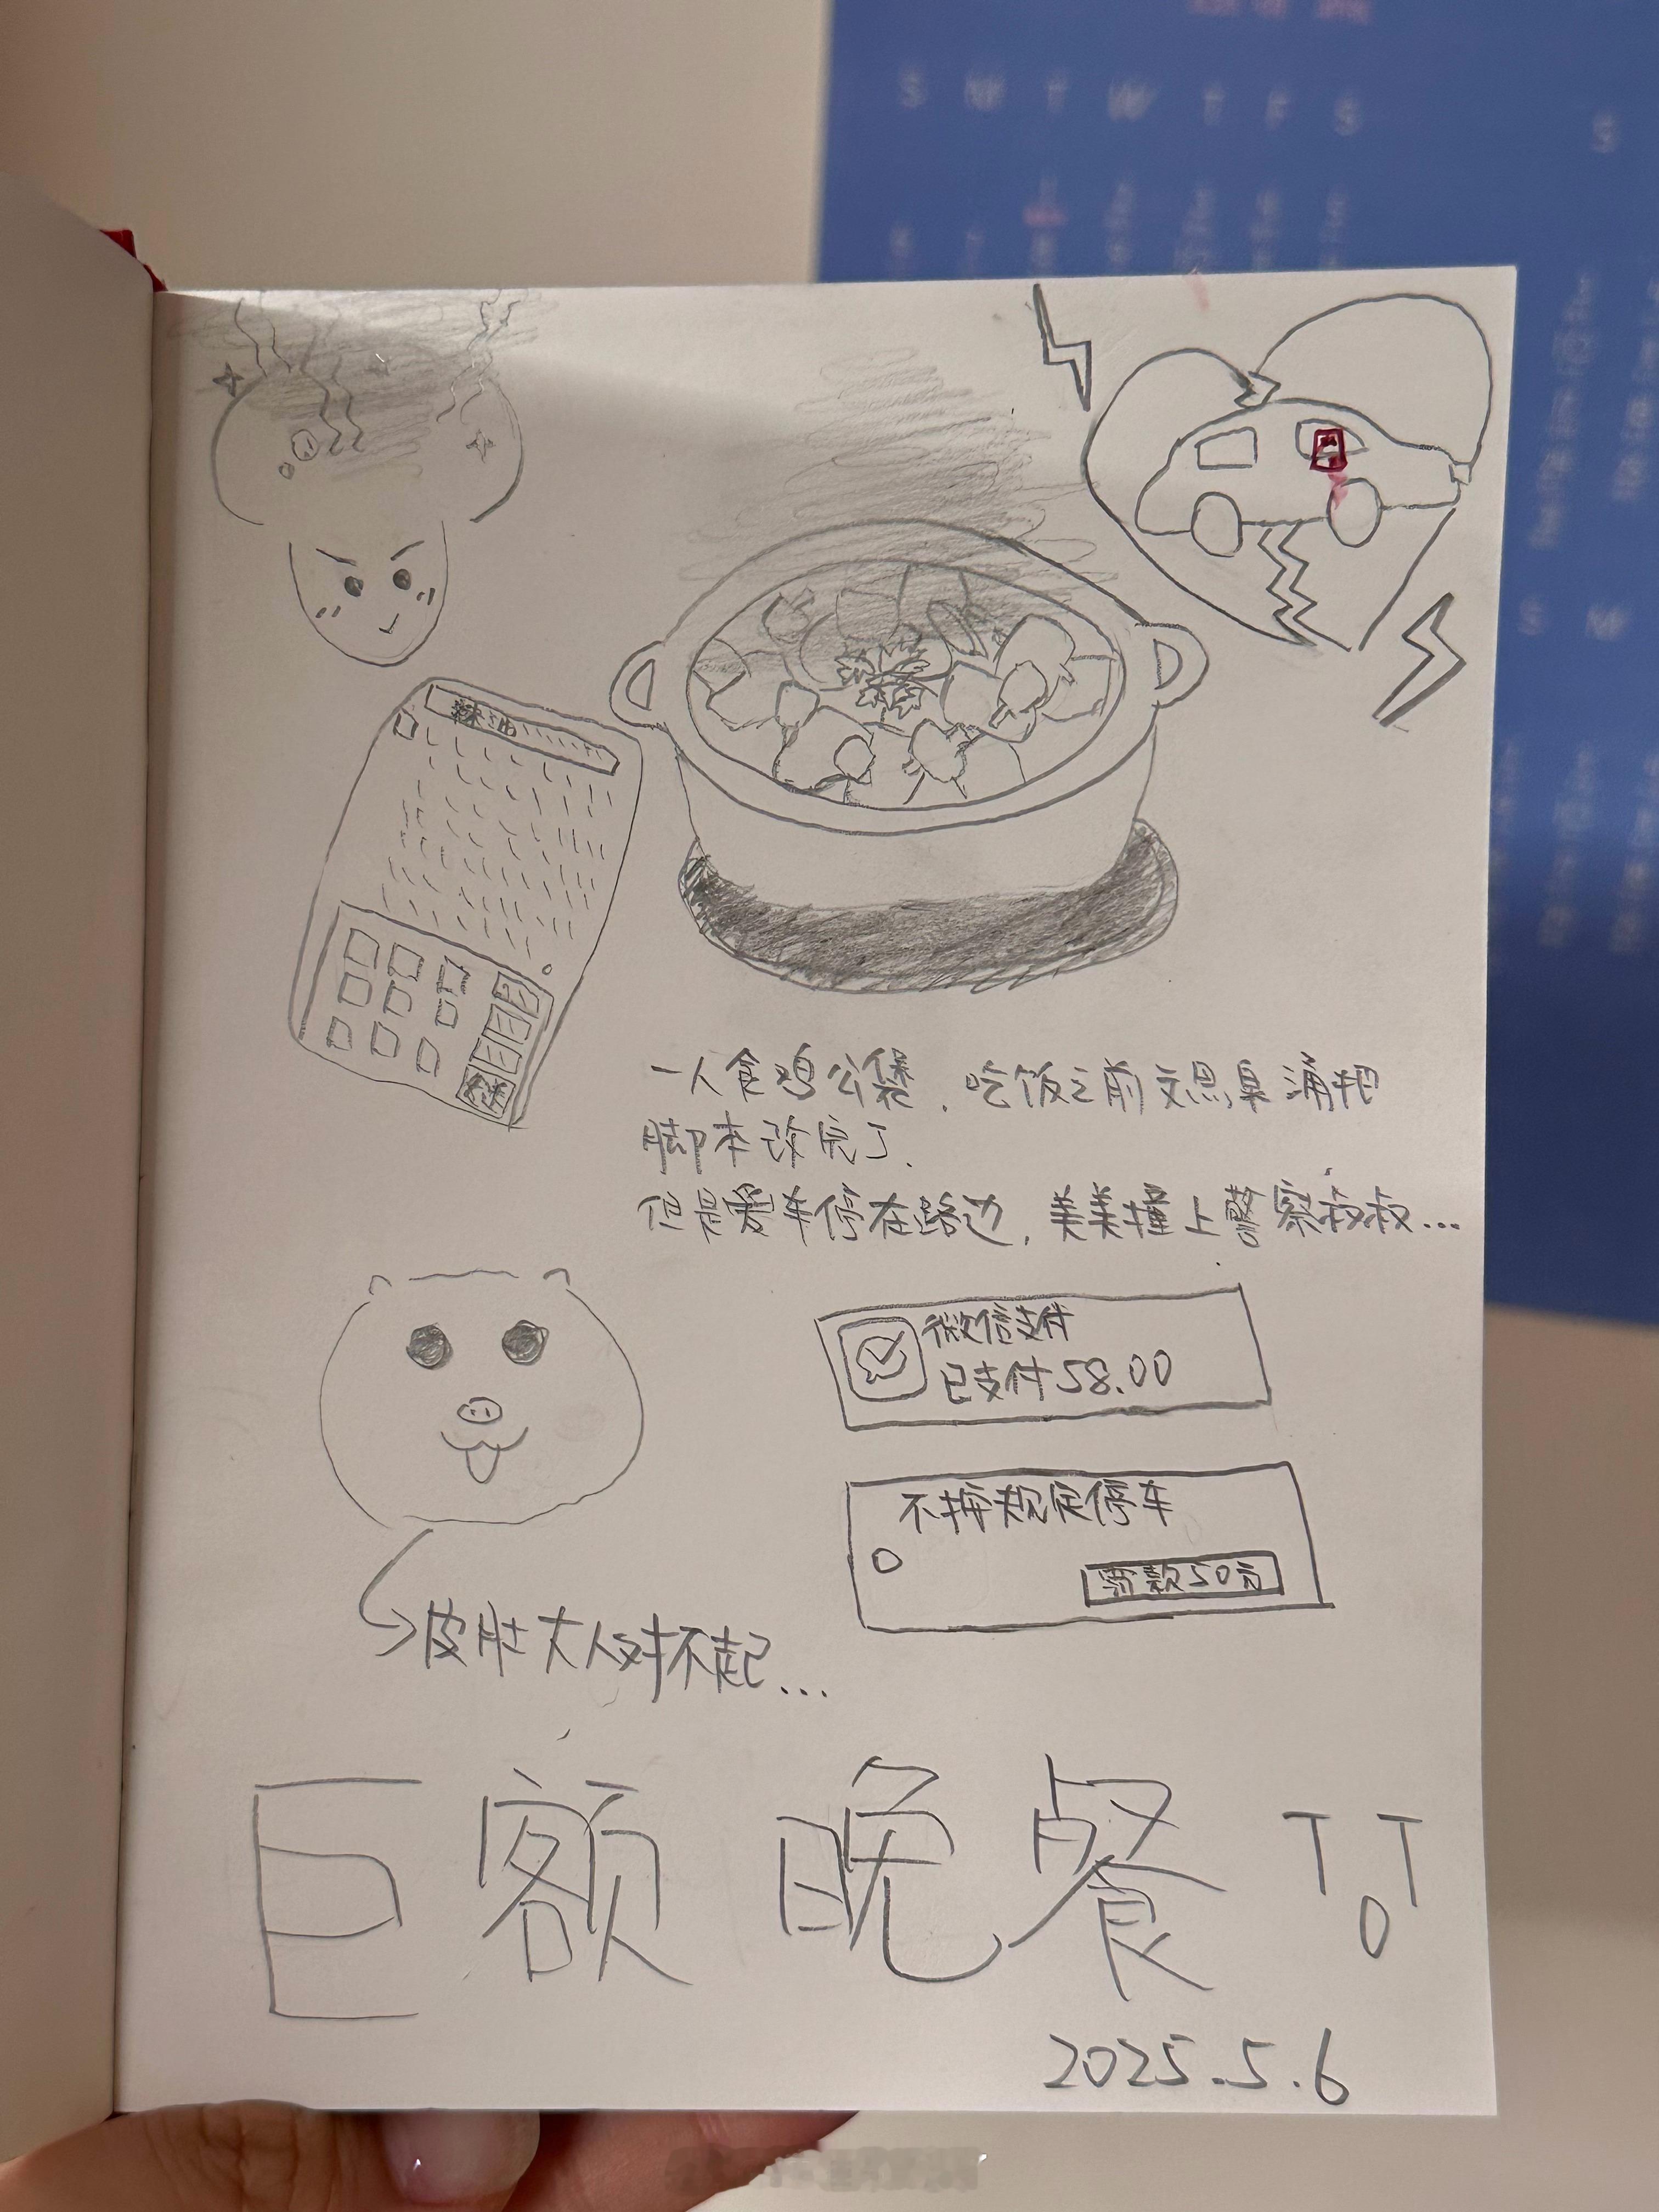 S M T W T F S
S
S M
辣油
一人食鸡公煲，吃饭之前文思泉涌把
脚本改完了.
但是爱车停在路边，美美撞上警察叔叔...
微信支付
已支付58.00
不按规定停车
罚款50元
皮肚大人对不起...
巨额 晚餐 T0T
2025.5.6